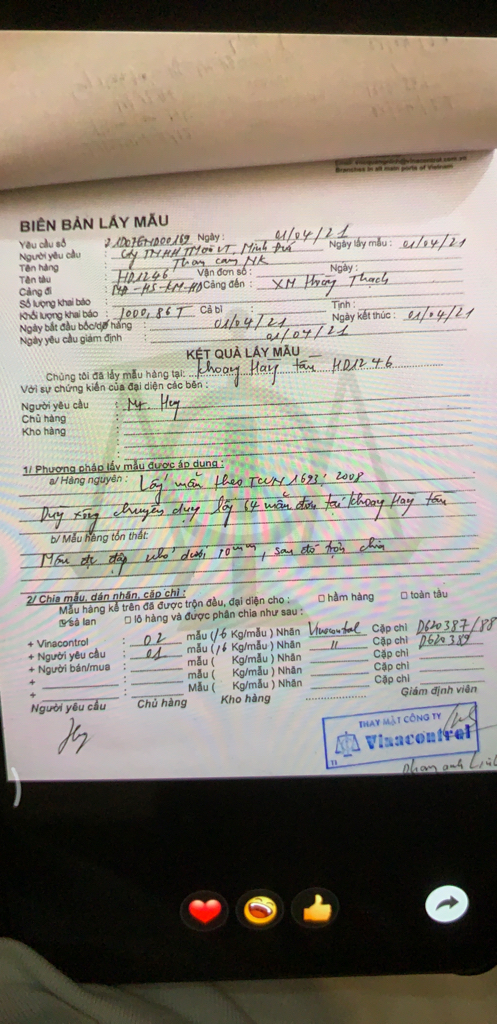 Branches in all main ports of Vietnam
BIÊN BẢN LẤY MẪU
Yêu cầu số Ngày : 01/04/21
Người yêu cầu Cty TNHH TM và VT Minh Đức Ngày lấy mẫu : 01/04/21
Tên hàng : Than cám NK
Tên tàu : HD1246 Vận đơn số : Ngày :
Cảng đi Cảng đến : XM Hoàng Thạch
Số lượng khai báo :
Khối lượng khai báo : 1000,86 T Cả bì : Tịnh :
Ngày bắt đầu bốc/dỡ hàng : 01/04/21 Ngày kết thúc : 01/04/21
Ngày yêu cầu giám định : 01/04/21
KẾT QUẢ LẤY MẪU
Chúng tôi đã lấy mẫu hàng tại: khoang Hay tàu HD1246
Với sự chứng kiến của đại diện các bên :
Người yêu cầu : Mr. Huy
Chủ hàng :
Kho hàng :
1/ Phương pháp lấy mẫu được áp dụng :
a/ Hàng nguyên : Lấy mẫu theo TCVN 1693: 2008
Dùng xẻng chuyên dụng lấy 64 mẫu đơn tại khoang Hay tàu
b/ Mẫu hàng tổn thất:
Mẫu đc đập nhỏ dưới 10mm, sau đó trộn chia
2/ Chia mẫu, dán nhãn, cặp chì :
Mẫu hàng kể trên đã được trộn đều, đại diện cho : ☐ hầm hàng ☐ toàn tàu
☑ sà lan ☐ lô hàng và được phân chia như sau :
+ Vinacontrol : 02 mẫu (1,6 Kg/mẫu ) Nhãn Vinacontrol Cặp chì D620387/88
+ Người yêu cầu : 01 mẫu (1,6 Kg/mẫu ) Nhãn " Cặp chì D620389
+ Người bán/mua : mẫu ( Kg/mẫu ) Nhãn Cặp chì
+ : mẫu ( Kg/mẫu ) Nhãn Cặp chì
+ : Mẫu ( Kg/mẫu ) Nhãn Cặp chì
Người yêu cầu Chủ hàng Kho hàng Giám định viên
THAY MẶT CÔNG TY
Vinacontrol